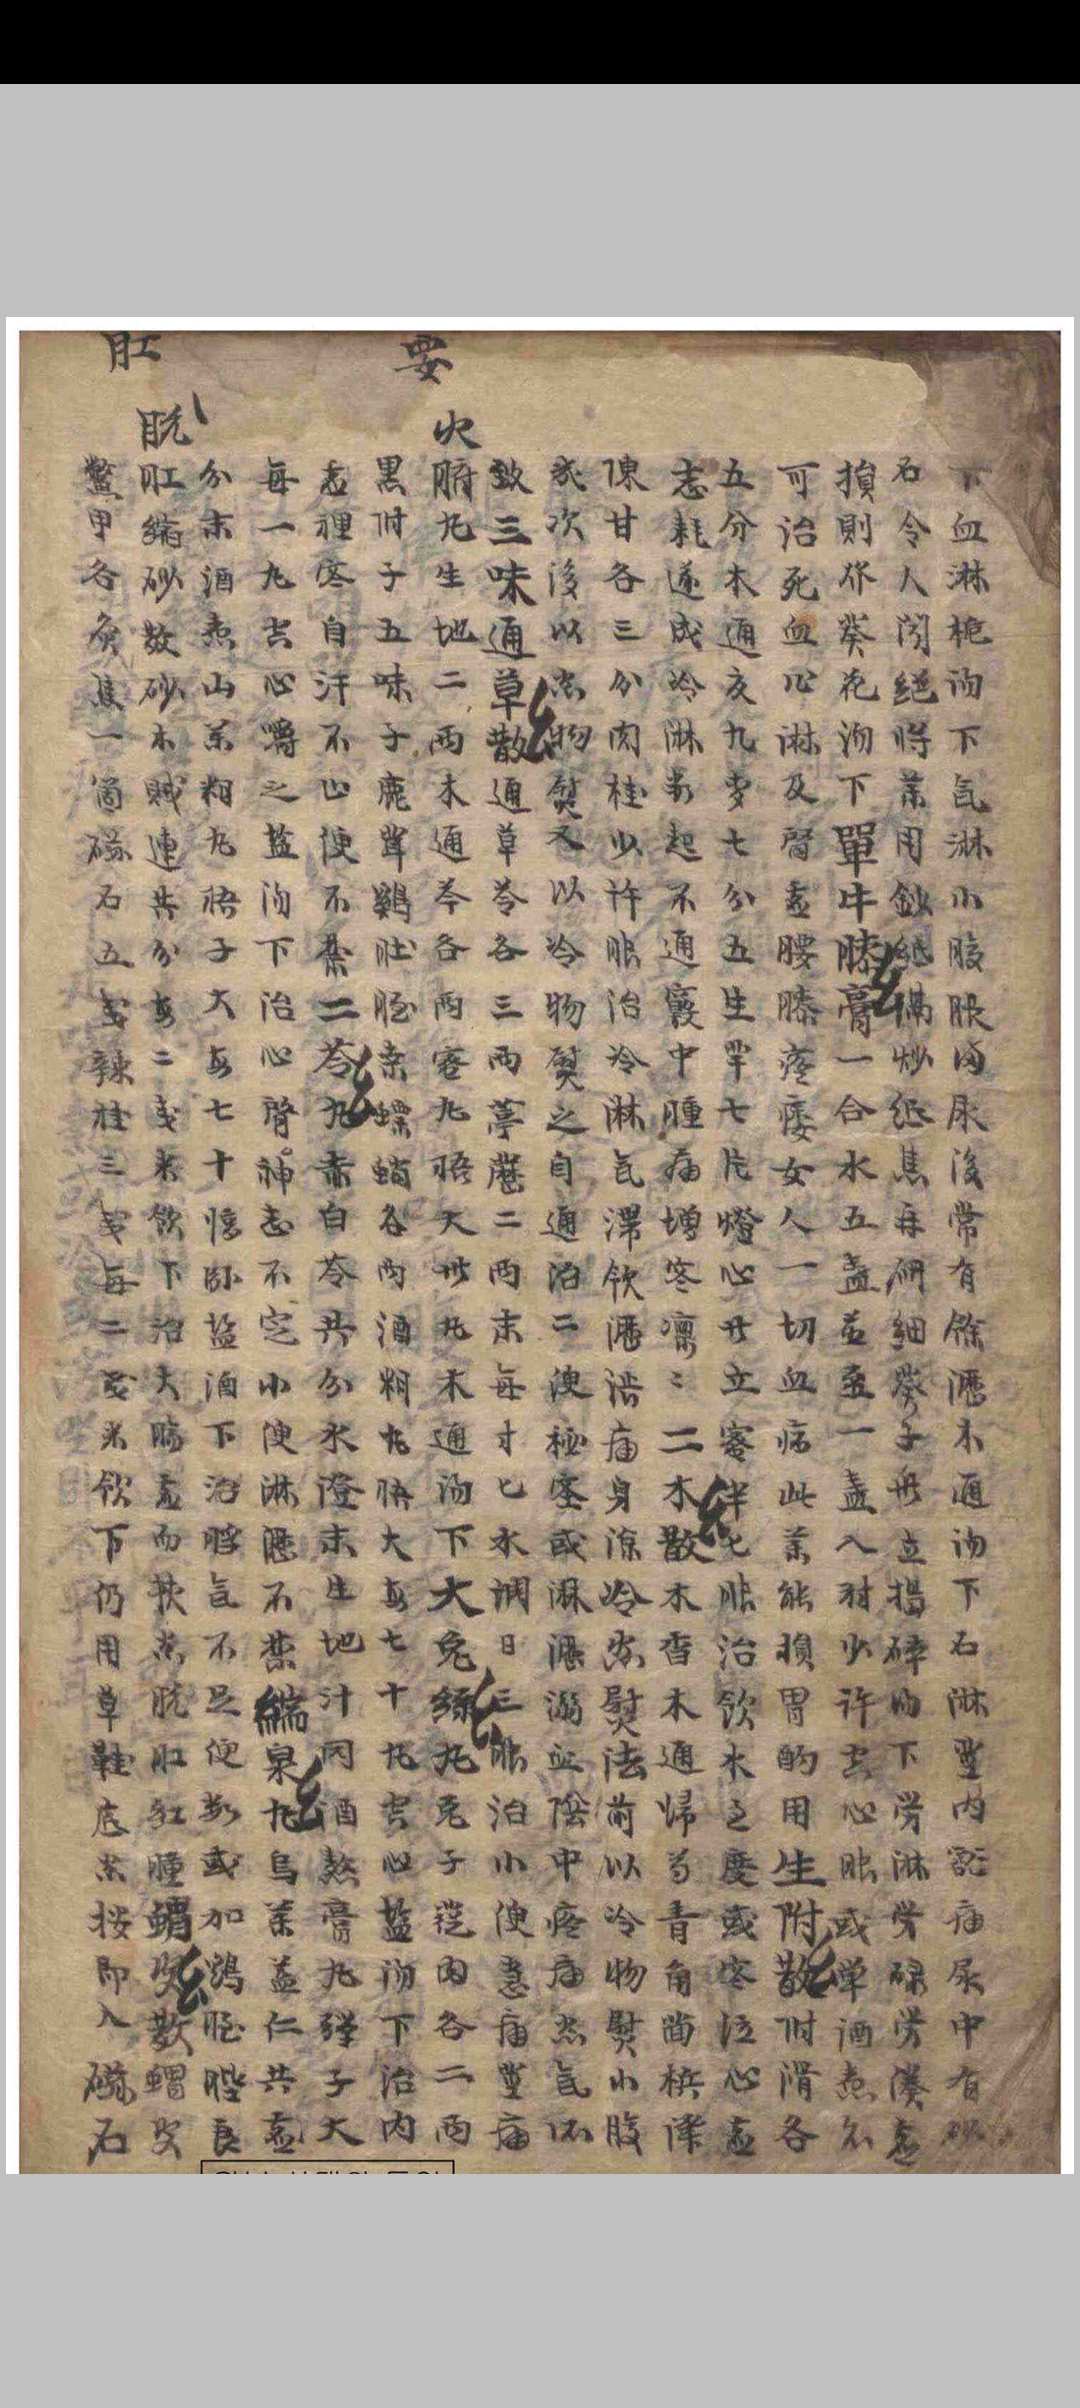 要
火
肛
脱
下血淋梔湯下氣淋小腹脹满尿後常有餘瀝木通湯下石淋莖内割痛尿中有砂
石令人悶絶將藥用鈔紙隔炒紙焦再研細葵子卅立搗碎湯下勞淋勞碌勞湊虛
損則作葵花湯下單牛膝膏一合水五盞煎至一盞入射少許空心服或單酒煎亦
可治死血心淋及腎虛腰膝疼痿女人一切血病此藥能損胃酌用生附散附滑各
五分木通夏九麥七分五生羊七片燈心廿立蜜半匕服治飲水之度或寒泣心虛
志耗遂成冷淋數起不通竅中腫痛增寒凛〻二木散木香木通歸芍青角茴梹澤
陳甘各三分肉桂少許服治冷淋氣滯欲瀝澁痛身凉冷熱熨法前以冷物熨小腹
幾次後以热物熨又以冷物熨之自通治二便秘塞或淋瀝溺血陰中疼痛热氣不
效三味通草散通草苓各三兩葶藶二兩末每寸匕水調日三服治小便急痛莖痛
腑九生地二兩木通苓各兩蜜九梧大卅九木通湯下大兔絲九兔子蓯肉各二兩
黒附子五味子鹿茸鷄肶胵桑螵蛸各兩酒糊九梧大每七十九空心盐湯下治内
虛裡寒自汗不止便不禁二苓九赤白苓共分水澄末生地汁同酒熬膏九弹子大
每一九空心嚼之盐湯下治心腎神志不定小便淋瀝不禁縮泉九烏藥益仁共
分末酒煮山藥糊九梧子大每七十臨卧盐酒下治脬氣不足便數或加鷄胵
肛縮砂散砂木賊連共分每二戋米飲下治大腸虛而挾热脱肛紅腫蝟皮散蝟皮
鱉甲各灸焦一箇磁石五戋辣桂三戋每二戋米飲下仍用草鞋底热按即入磁石